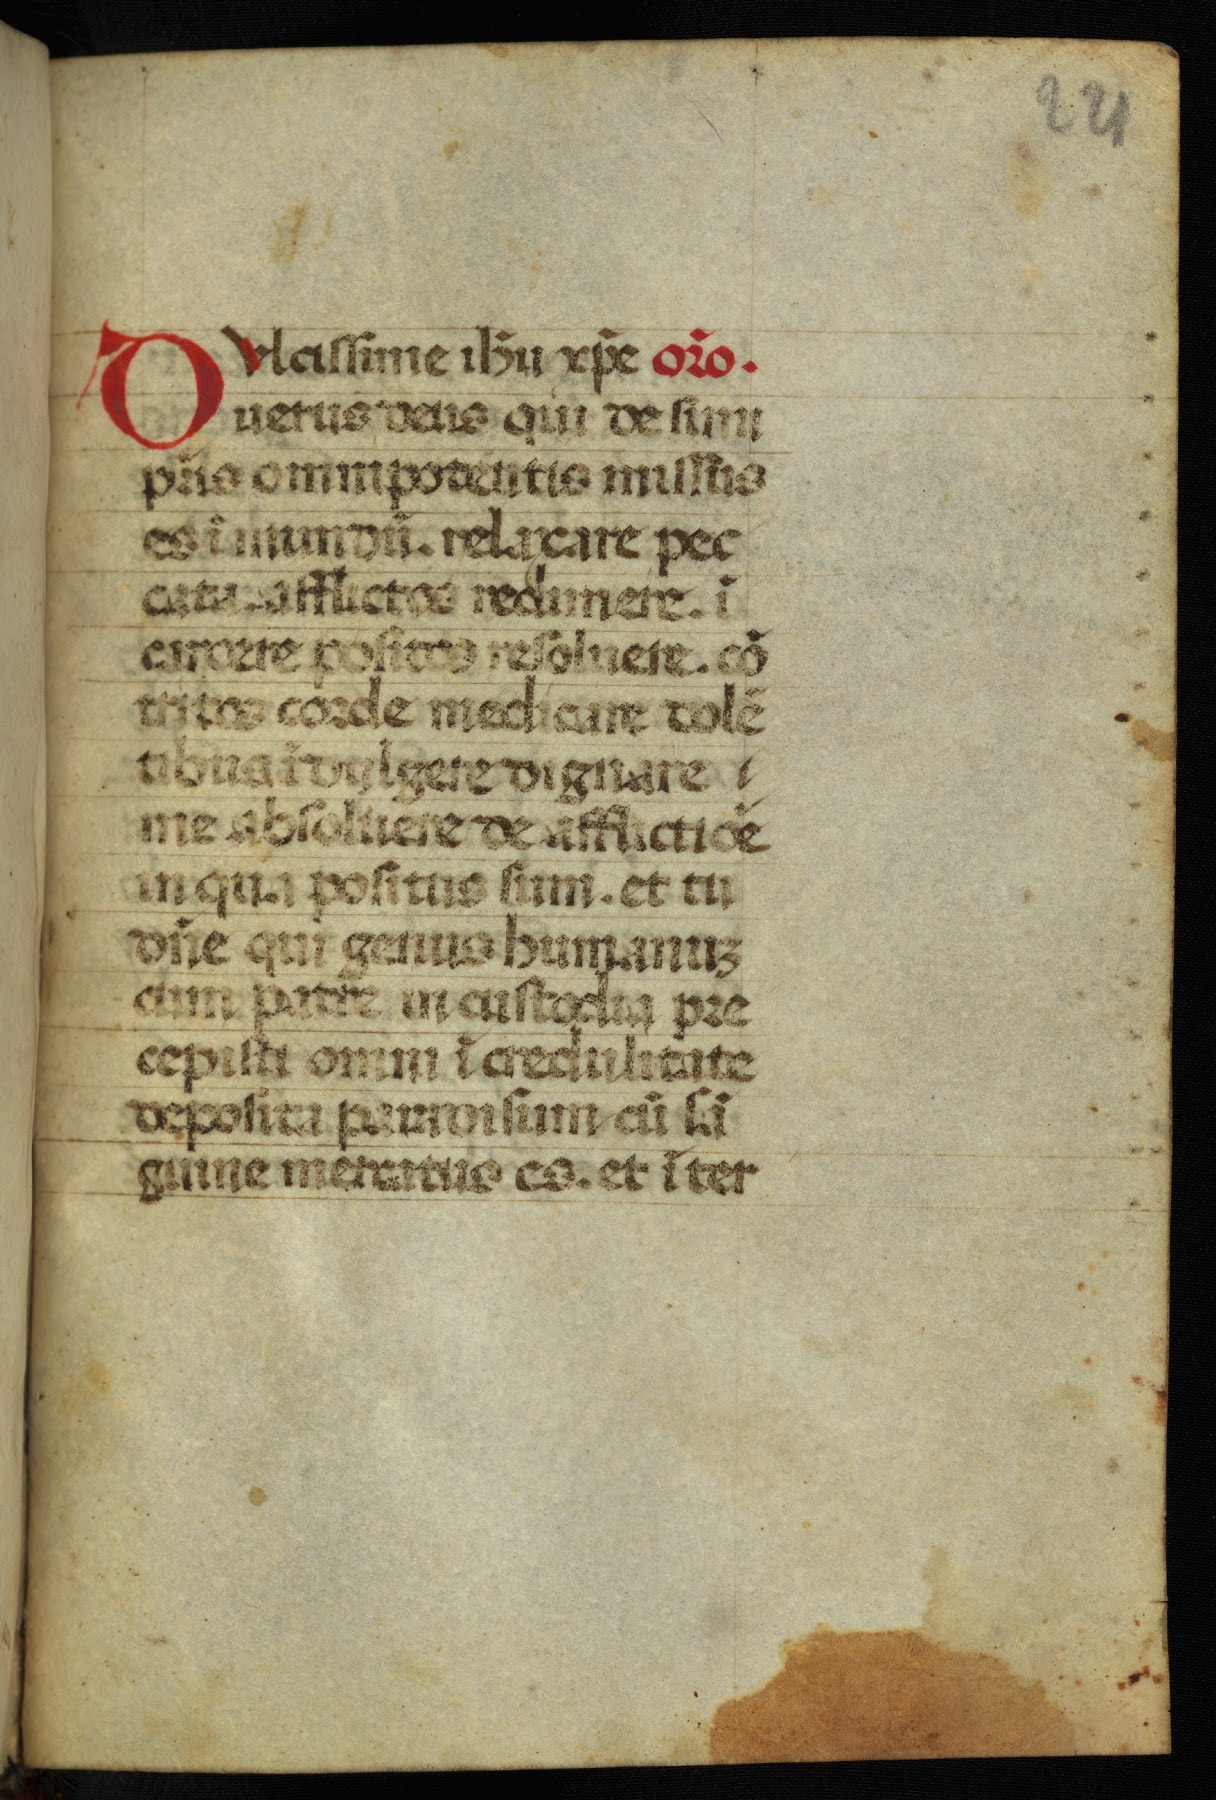 221
Dvlcissime ih̄u xp̄e or̄o.
uerus deus qui de sinu
pr̄is omnipotentis missus
es ī mundū. relaxare pec
cata. afflictos redimere. ī
carcere positos resoluere. cō
tritos corde medicare dolē
tibus īdulgere dignare
me absoluere de afflictiōe
in qua positus sum. et tu
dn̄e qui genus humanuꝫ
cum patre in custodia pre
cepisti omni ī credulitate
deposita paradisum cū sā
guine mercatus es. et ī ter